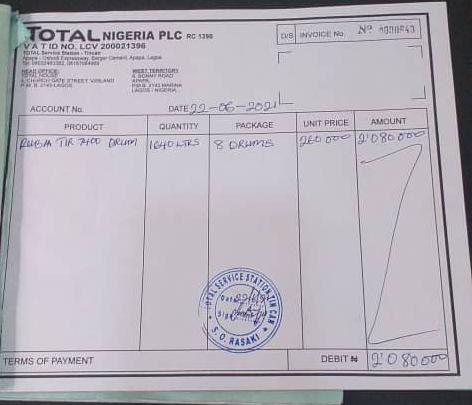 TOTAL NIGERIA PLC RC 1396
VAT ID NO. LCV 200021396
Total Service Station - Tincan
Apapa - Oshodi Expressway, Berger Cement, Apapa, Lagos
HEAD OFFICE:
TOTAL HOUSE
4, CHURCH GATE STREET, V/ISLAND
P.M.B. 2143 LAGOS
WEST TERRITORY
6, BONNY ROAD
APAPA,
P.M.B. 2143 MARINA
LAGOS / NIGERIA
D/S INVOICE No. Nº
ACCOUNT No. DATE 22-06-2021
PRODUCT QUANTITY PACKAGE UNIT PRICE AMOUNT
RUBIA TIR 7400 DRUM 1640 LTRS 8 DRUMS 260 000 2'080000
TOTAL SERVICE STATION TIN CAN
Date
Sign
S. O. RASAKI
TERMS OF PAYMENT DEBIT ₦ 2'080000